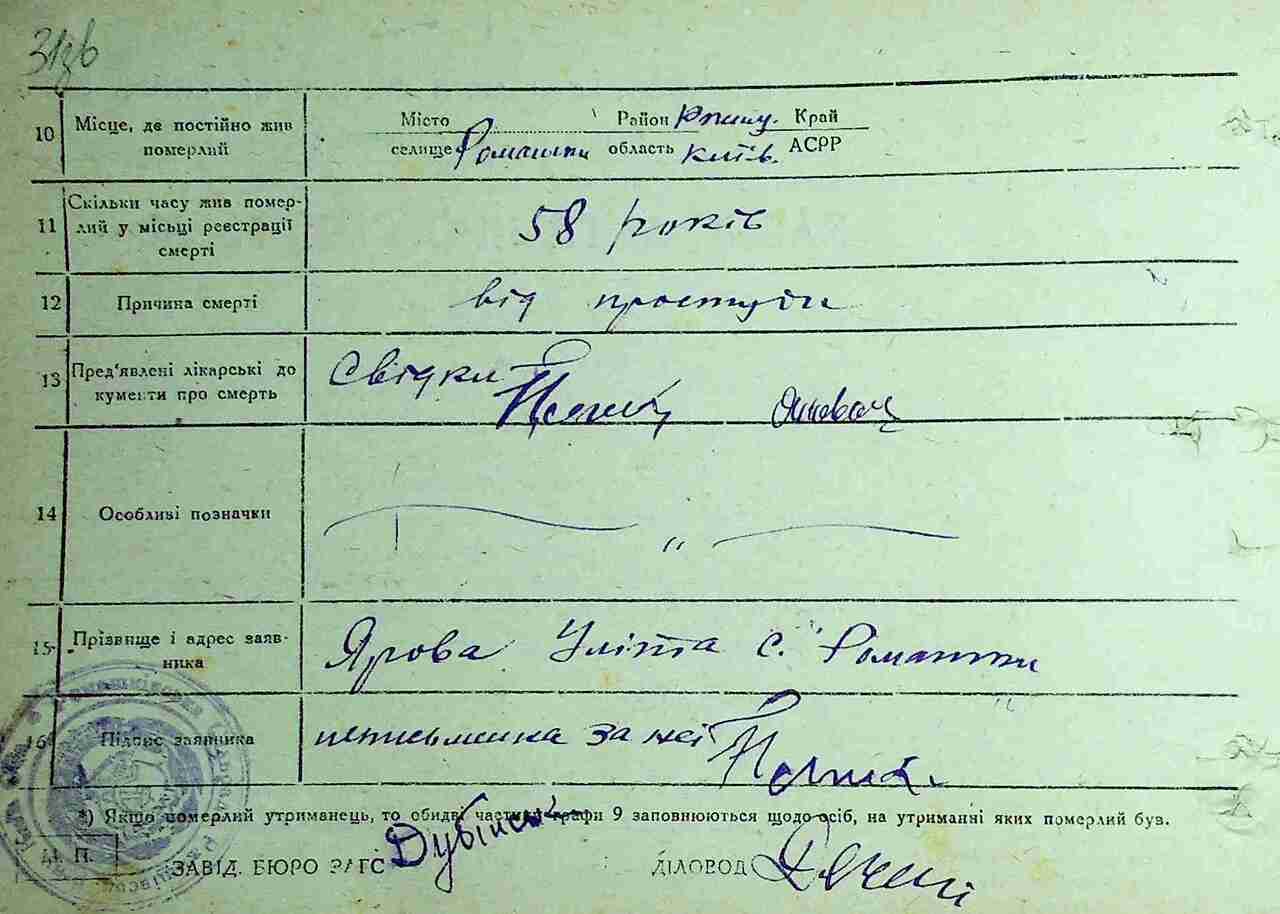 31зв
10 Місце, де постійно жив померлий
Місто Район Ржищ. Край
селище Ромашки область Київ. АСРР
11 Скільки часу жив помер-
лий у місці реєстрації
смерті
58 років
12 Причина смерті
від простуди
13 Пред'явлені лікарські до
кументи про смерть
Свідки
14 Особливі позначки
"
15 Прізвище і адрес заяв-
ника
Ярова Уліта с. Ромашки
16 Підпис заявника
неписьменна за неї
*) Якщо померлий утриманець, то обидві частини графи 9 заповнюються щодо осіб, на утриманні яких померлий був.
М. П.
ЗАВІД. БЮРО ЗАГС
ДІЛОВОД